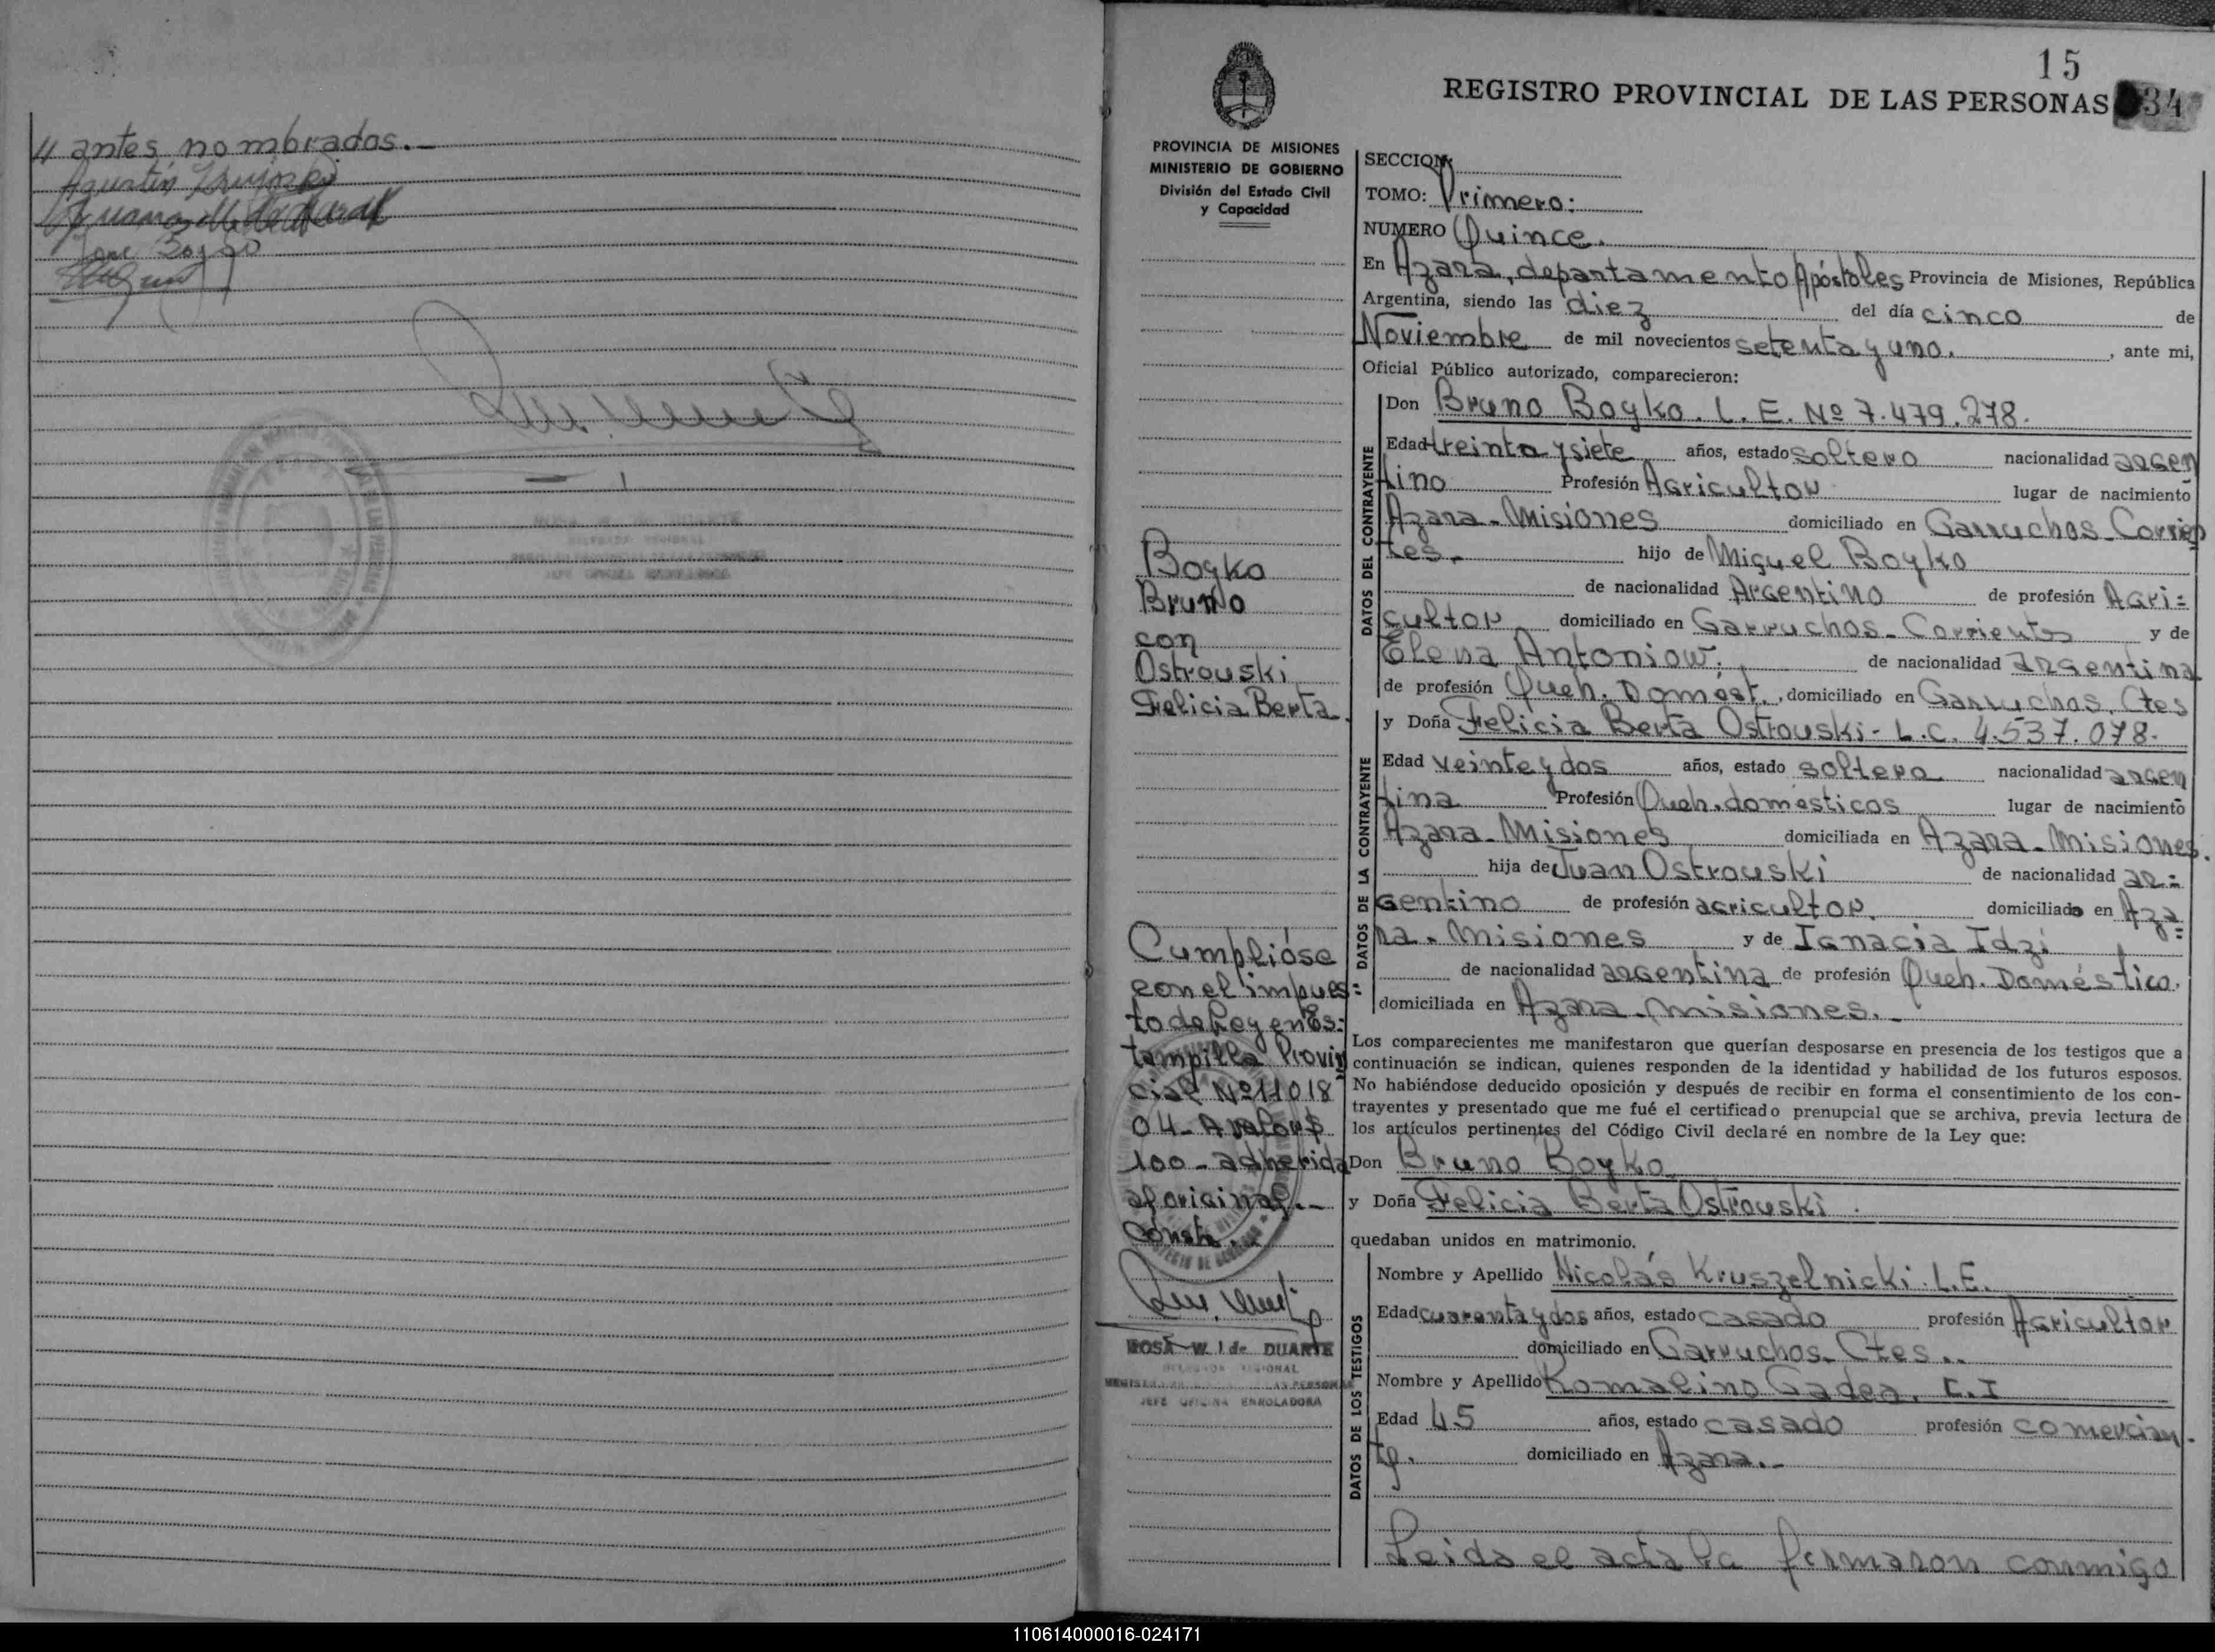 // antes nombrados.-
Agustin
Jose Boyko
15
REGISTRO PROVINCIAL DE LAS PERSONAS
34
PROVINCIA DE MISIONES
MINISTERIO DE GOBIERNO
División del Estado Civil
y Capacidad
Boyko
Bruno
con
Ostrouski
Felicia Berta.
Cumplióse
con el impues=
to de Ley en Es=
tampilla Provin
cial Nº 11018
04- A valor $
100- adherida
al original.-
Conste.-
ROSA W. I de DUARTE
JEFE OFICINA ENROLADORA
SECCION
TOMO: Primero:
NUMERO Quince.
En Azara, departamento Apóstoles Provincia de Misiones, República
Argentina, siendo las diez del día cinco de
Noviembre de mil novecientos setenta y uno. , ante mi,
Oficial Público autorizado, comparecieron:
DATOS DEL CONTRAYENTE
Don Bruno Boyko. L. E. Nº 7.479.278.
Edad treinta y siete años, estado soltero nacionalidad argen
tino Profesión Agricultor lugar de nacimiento
Azara-Misiones domiciliado en Garruchos-Corrien
tes.- hijo de Miguel Boyko
de nacionalidad Argentino de profesión Agri=
cultor domiciliado en Garruchos-Corrientes y de
Elena Antoniow. de nacionalidad argentina
de profesión Queh. Domést. , domiciliado en Garruchos. Ctes
DATOS DE LA CONTRAYENTE
y Doña Felicia Berta Ostrouski- L.C. 4.537.078.
Edad veinte y dos años, estado soltera nacionalidad argen
tina Profesión Queh. domésticos lugar de nacimiento
Azara-Misiones domiciliada en Azara-Misiones.
hija de Juan Ostrouski de nacionalidad ar=
gentino de profesión agricultor. domiciliado en Aza=
ra-Misiones y de Ignacia Idzi
de nacionalidad argentina de profesión Queh. Doméstico.
domiciliada en Azara-Misiones.-
Los comparecientes me manifestaron que querían desposarse en presencia de los testigos que a
continuación se indican, quienes responden de la identidad y habilidad de los futuros esposos.
No habiéndose deducido oposición y después de recibir en forma el consentimiento de los con-
trayentes y presentado que me fué el certificado prenupcial que se archiva, previa lectura de
los artículos pertinentes del Código Civil declaré en nombre de la Ley que:
Don Bruno Boyko
y Doña Felicia Berta Ostrouski.
quedaban unidos en matrimonio.
DATOS DE LOS TESTIGOS
Nombre y Apellido Nicolás Kruszelnicki. L.E.
Edad cuarenta y dos años, estado casado profesión Agricultor
domiciliado en Garruchos-Ctes..
Nombre y Apellido Romalino Gadea. C.I
Edad 45 años, estado casado profesión comercian-
te. domiciliado en Azara.-
Leida el acta la firmaron conmigo
110614000016-024171